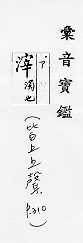 彙音寶鑑
滓 濁也
(皆上上聲 P.310)